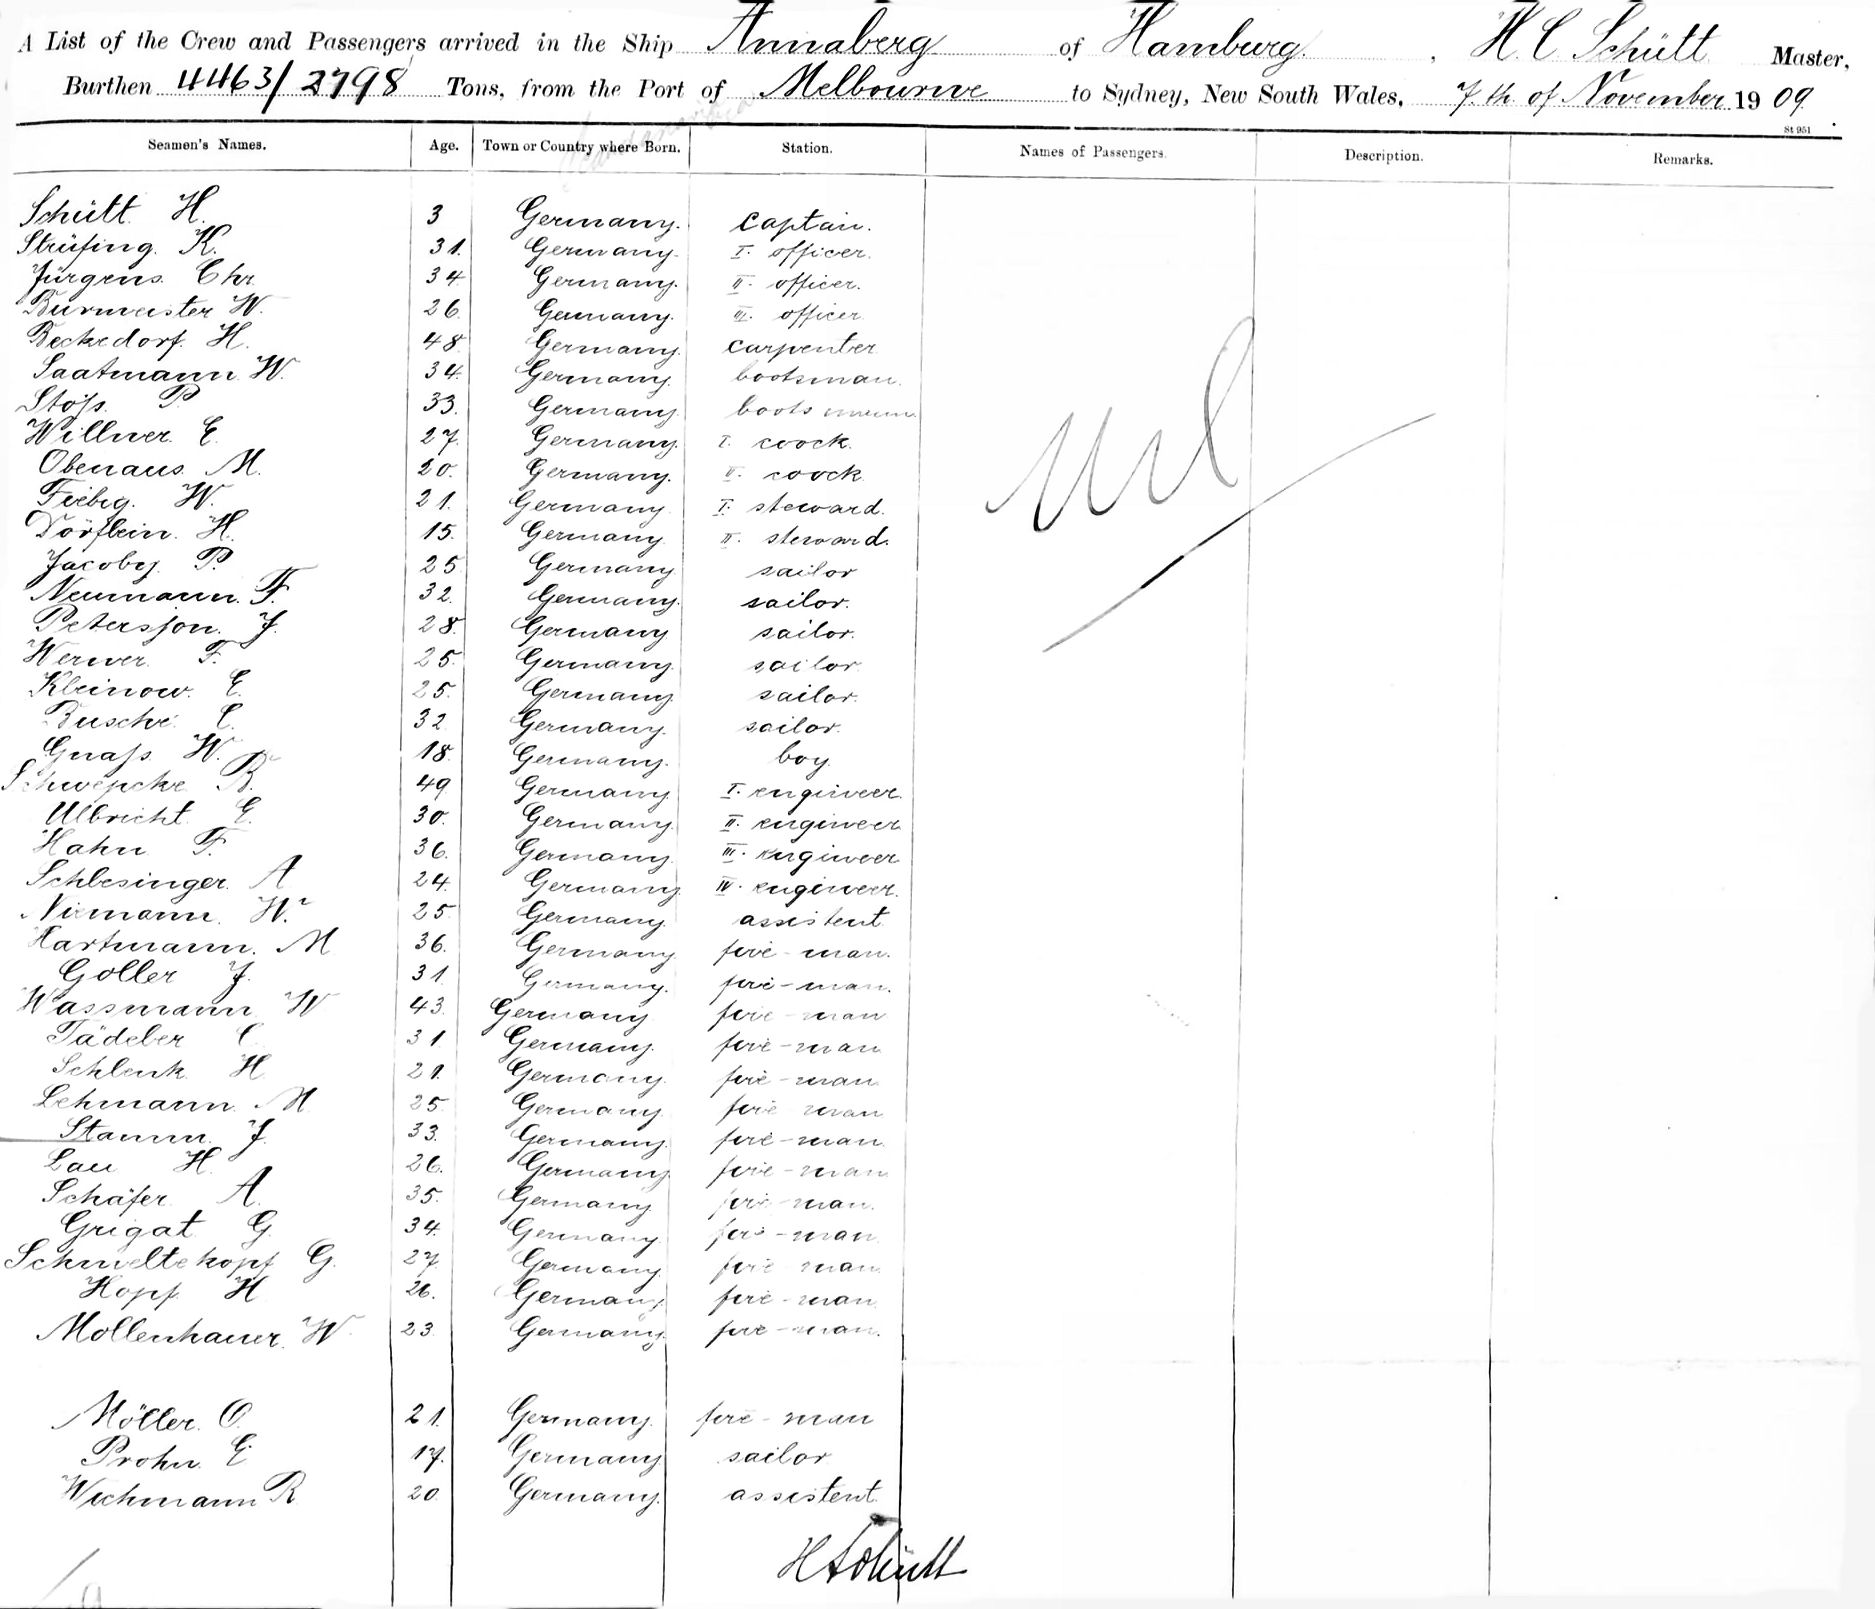 A List of the Crew and Passengers arrived in the Ship Annaberg of Hamburg, H C Schütt Master,
Burthen 4463/2798 Tons, from the Port of Melbourne to Sydney, New South Wales, 7th of November 1909
St 951
Seamen's Names. Age. Town or Country where Born. Station. Names of Passengers. Description. Remarks.
Schütt H. 3 Germany. captain.
Strüfing. K. 31. Germany. I. officer.
Jürgens. Chr. 34 Germany. II. officer.
Burmeister W. 26. Germany. III. officer
Beckedorf. H. 48 Germany. carpenter
Saatmann W. 34. Germany. bootsman.
Stöß. P. 33. Germany. bootsmann.
Willner. E. 27. Germany. I. coock.
Obenaus. M. 20. Germany. II. coock
Fiebig. W. 21. Germany. I. steward.
Dörflein. H. 15. Germany. II. steward.
Jacoby. P. 25 Germany sailor
Neumann. F. 32. Germany. sailor.
Petersson. J. 28. Germany sailor.
Werner. F. 25. Germany. sailor
Kleinow. E. 25. Germany. sailor.
Busche. C. 32 Germany. sailor.
Gnaß. W. 18. Germany. boy
Schwepcke B. 49 Germany. I. engineer.
Ulbricht. E. 30. Germany. II. engineer
Hahn F. 36. Germany. III. engineer
Schlesinger. A 24. Germany. IV. engineer.
Niemann. W. 25 Germany. assistent
Hartmann. M 36. Germany. fire-man.
Goller J. 31 Germany. fire-man.
Wassmann W 43. Germany fire-man
Tädeber C. 31 Germany. fire-man
Schlenk H 21. Germany. fire-man.
Lehmann. M 25 Germany. fire man
Stamm. J. 33. Germany. fire-man.
Lau H. 26. Germany. fire-man
Schäfer. A. 35. Germany fire-man.
Grigat G. 34. Germany. fire-man.
Schmeltekopf G. 27. Germany. fire man.
Hopf. H 26. Germany. fire-man.
Mollenhauer. W. 23. Germany. fire-man.
Möller. O. 21. Germany. fire-man
Prohn. E 17. Germany. sailor
Wichmann R 20. Germany. assistent.
Nil
H Schütt